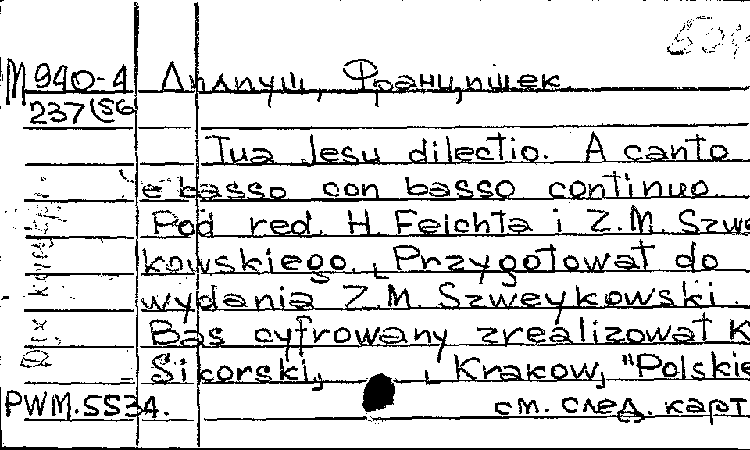 М 940-4 Лилпуш, Францишек.
237(56
Tua Jesu dilectio. A canto
e basso con basso continuo
Pod red. H. Feichta i Z.M. Szwe
kowskiego. Przygotował do
wydania Z.M. Szweykowski.
Bas cyfrowany zrealizował K
Sikorski, Krakow, "Polskie
PWM.5534. см. след. карт